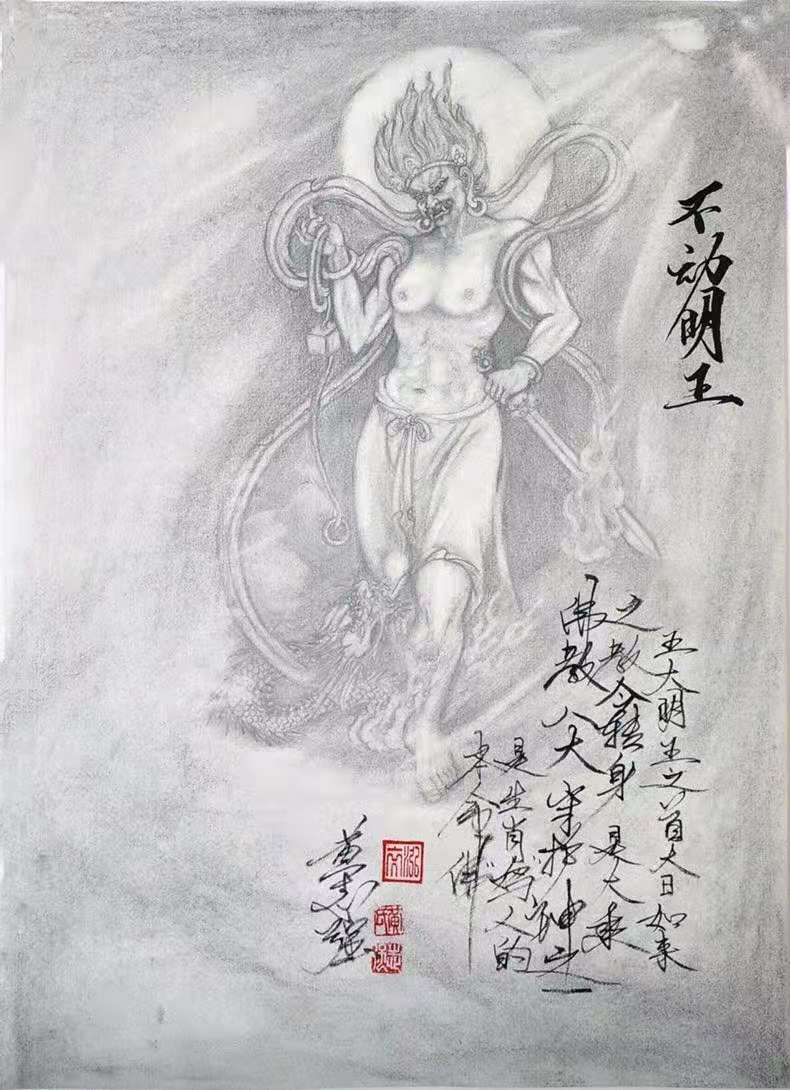 不动明王
五大明王之首大日如来
之教令转身 是大乘
佛教八大守护神之一
是生肖鸡人的
本命佛
黄志强